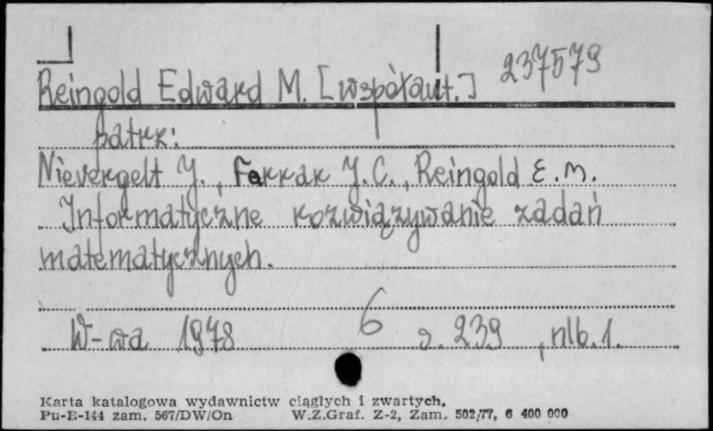 237579
Reingold Edward M. [współaut.]
patrz:
Nievergelt J., Farrar J.C., Reingold E.M.
Informatyczne rozwiązywanie zadań
matematycznych.
W-wa 1978 6 s. 239, nlb. 1.
Karta katalogowa wydawnictw ciągłych i zwartych.
Pu-B-144 zam. 567/DW/On W.Z.Graf. Z-2, Zam. 502/77, 6 400 000